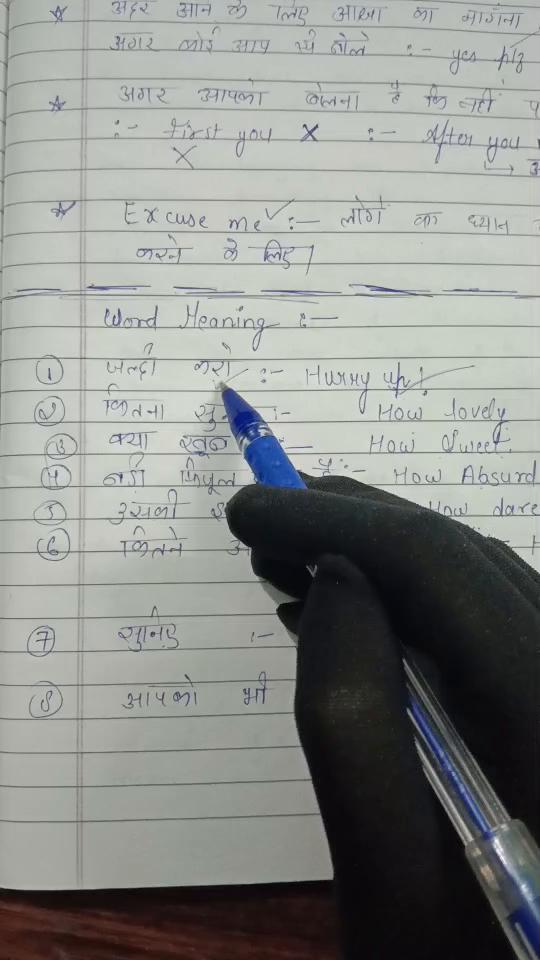 अंदर आने के लिए आज्ञा का मांगना
अगर कोई आप से बोले :- yes plz
अगर आपको बोलना है कि नहीं प
:- First you X :- After you
X
Excuse me ✓ :- लोगो का ध्यान
करने के लिए|
Word Meaning :-
① जल्दी करो :- Hurry up!
② कितना :- How lovely
③ क्या खूब :- How Sweet.
④ बड़ी है :- How Absurd
⑤ उसकी How dare
⑥ कितने
⑦ सुनिए :-
⑧ आपको भी